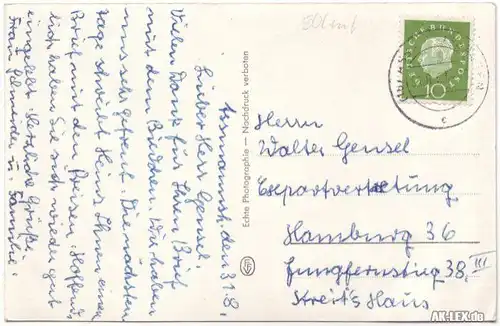 Assmannsh. den 31.8.
Lieber Herr Gensel.
Vielen Dank für Ihren Brief
mit den Bildchen. Wir haben
uns sehr gefreut. Die nächsten
Tage schreibt Heinz Ihnen einen
Brief mit den Preisen. Hoffent-
lich haben Sie sich wieder gut
eingelebt. Herzliche Grüße
Fam. u. Familie.
Echte Photographie — Nachdruck verboten
DEUTSCHE BUNDESPOST
10
c
Herrn
Walter Gensel
Exportvertretung
Hamburg 36
Jungfernstieg 38 III
Streit's Haus
AK-LEX.de